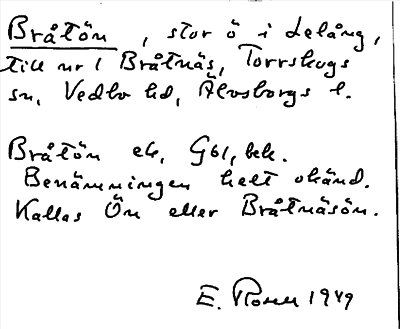 Bråtön, stor ö i Lelång,
till nr 1 Bråtnäs, Torrskogs
sn, Vedbo hd, Älvsborgs l.
Bråtön ek, G61, bek.
Benämningen helt okänd.
Kallas Ön eller Bråtnäsön.
E. 1949